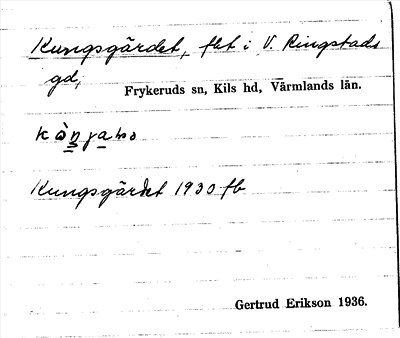 Kungsgärdet, fht i V. Ringstads
gd,
Frykeruds sn, Kils hd, Värmlands län.
Kungsgärdet 1930 fb
Gertrud Erikson 1936.